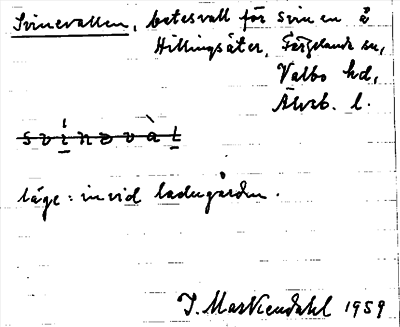 Svinevallen, betesvall för svinen å
Hillingsäter, Färgelanda sn,
Valbo hd,
Älvsb. l.
svinəvàl
läge: invid ladugården.
J. Markendahl 1959